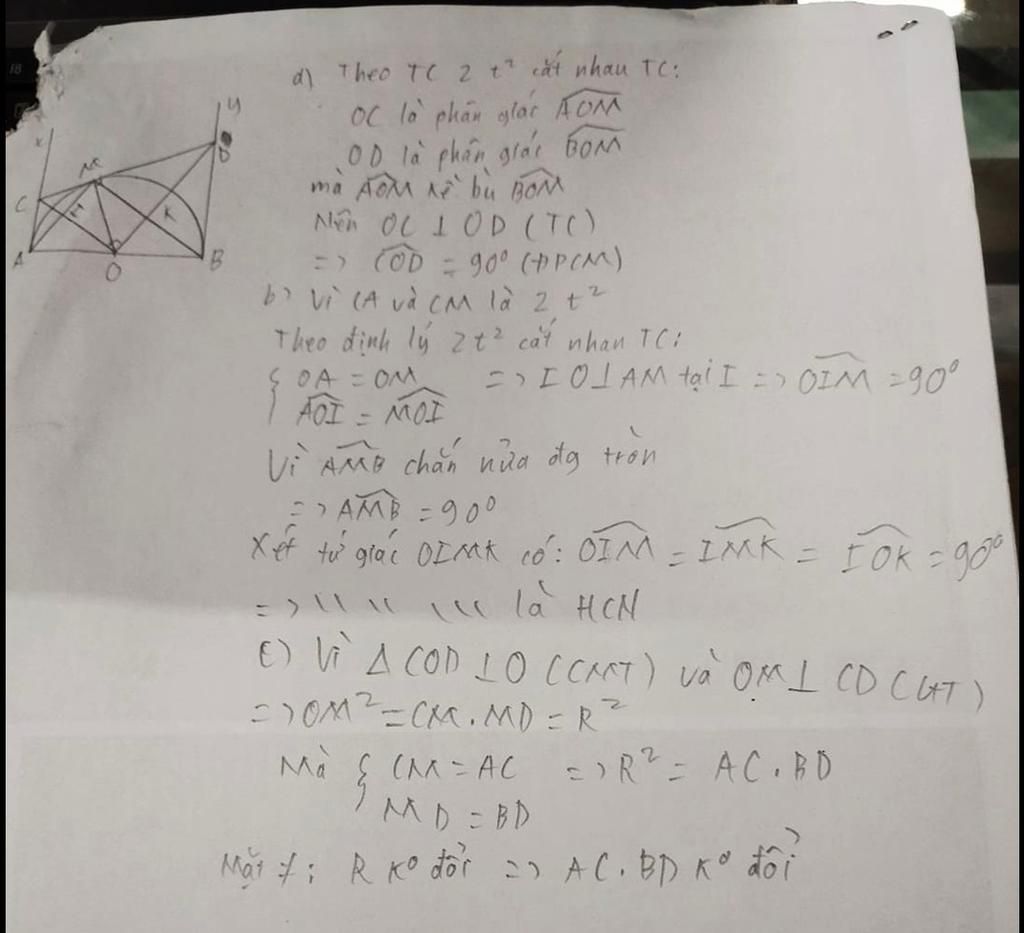 x
y
M
D
C
I
K
A
O
B
a) Theo TC 2 t² cắt nhau TC:
OC là phân giác AOM
OD là phân giác BOM
mà AOM kề bù BOM
Nên OC ⊥ OD (TC)
=> COD = 90° (ĐPCM)
b) Vì CA và CM là 2 t²
Theo định lý 2 t² cắt nhau TC:
{ OA = OM => IO ⊥ AM tại I => OIM = 90°
AOI = MOI
Vì AMB chắn nửa đg tròn
=> AMB = 90°
Xét tứ giác OIMK có: OIM = IMK = IOK = 90°
=> \\ \\ \\\ là HCN
c) Vì Δ COD ⊥ O (CMT) và OM ⊥ CD (GT)
=> OM² = CM.MD = R²
Mà { CM = AC => R² = AC.BD
MD = BD
Mặt ≠: R k° đổi => AC.BD k° đổi